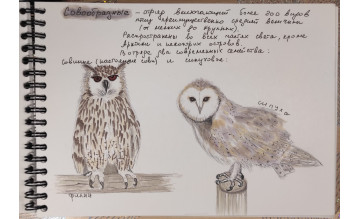 Совообразные – отряд включающий более 200 видов
птиц преимущественно средней величины
(от мелких до крупных).
Распространены во всех частях света, кроме
Арктики и некоторых островов.
В отряде два современных семейства:
совиные (настоящие совы) и сипуховые.
сипуха
филин